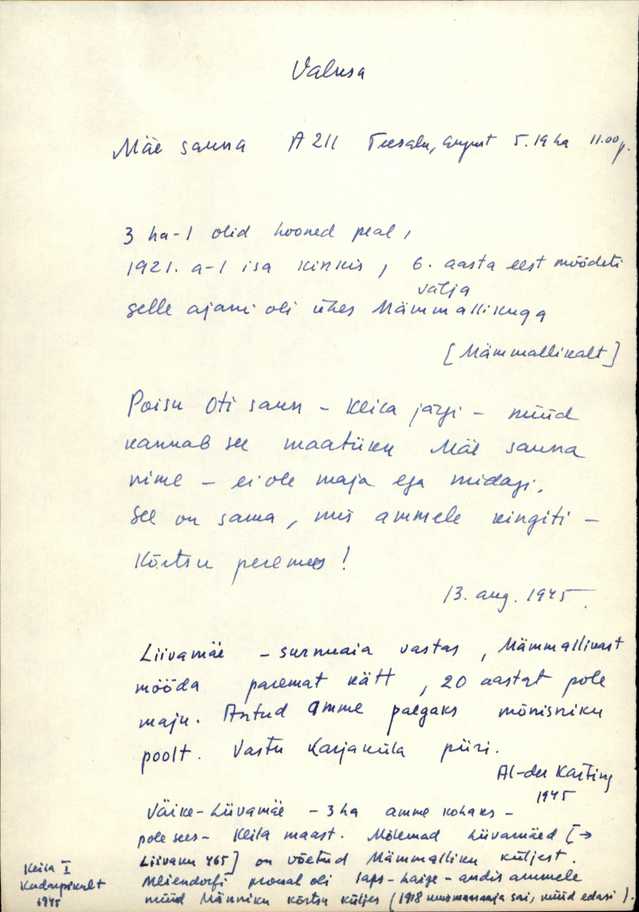 Valusa
Mäe sauna A 211 Teesalu, august 5.19 ha 11.00 p.
3 ha-l olid hooned peal,
1921. a-l isa kinkis, 6. aasta eest mõõdeti
välja
selle ajani oli ühes Mämmallikuga
[Mämmallikalt]
Poisu Oti saun - Keila järgi - nüüd
kannab see maatükk Mäe sauna
nime - ei ole maja ega midagi.
See on sama, mis ammele kingiti -
Kõrtsu peremees!
13. aug. 1945.
Liivamäe - surnuaia vastas, Mämmallikast
mööda paremat kätt, 20 aastat pole
maju. Antud amme palgaks mõisniku
poolt. Vastu Karjaküla piiri.
Al-der Kasting
1945
Väike-Liivamäe - 3 ha amme kohaks -
pole sees - Keila maast. Mõlemad Liivamäed [→
Liivaku 465] on võetud Mämmalliku küljest.
Meiendorfi proual oli laps - haige - andis ammele
nüüd Männiku kõrtsu küljes (1918 uusmaasaaja sai, nüüd edasi).
Keila I
Kudapikalt
1945